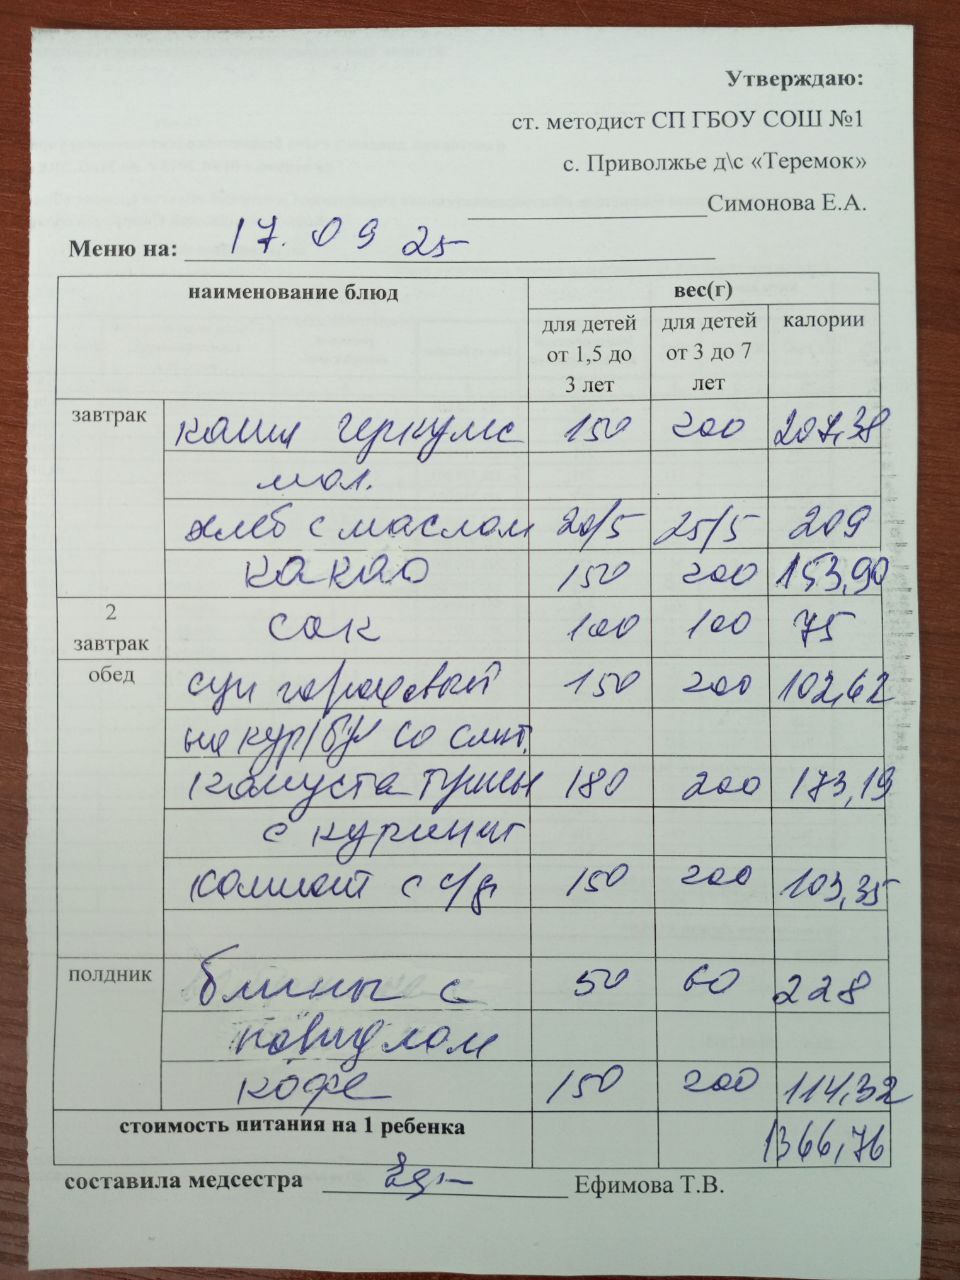 Утверждаю:
ст. методист СП ГБОУ СОШ №1
с. Приволжье д\с «Теремок»
Симонова Е.А.
Меню на: 17. 09 25
наименование блюд вес(г)
для детей от 1,5 до 3 лет для детей от 3 до 7 лет калории
завтрак каша геркулес 150 200 207,38
мол.
хлеб с маслом 20/5 25/5 209
какао 150 200 153,90
2 завтрак сок 100 100 75
обед суп гороховый 150 200 102,62
на кур/бул со смет.
капуста тушен 180 200 173,19
с курицей
компот с с/ф 150 200 103,35
полдник блины с 50 60 228
повидлом
кофе 150 200 114,32
стоимость питания на 1 ребенка 1366,76
составила медсестра Ефимова Т.В.